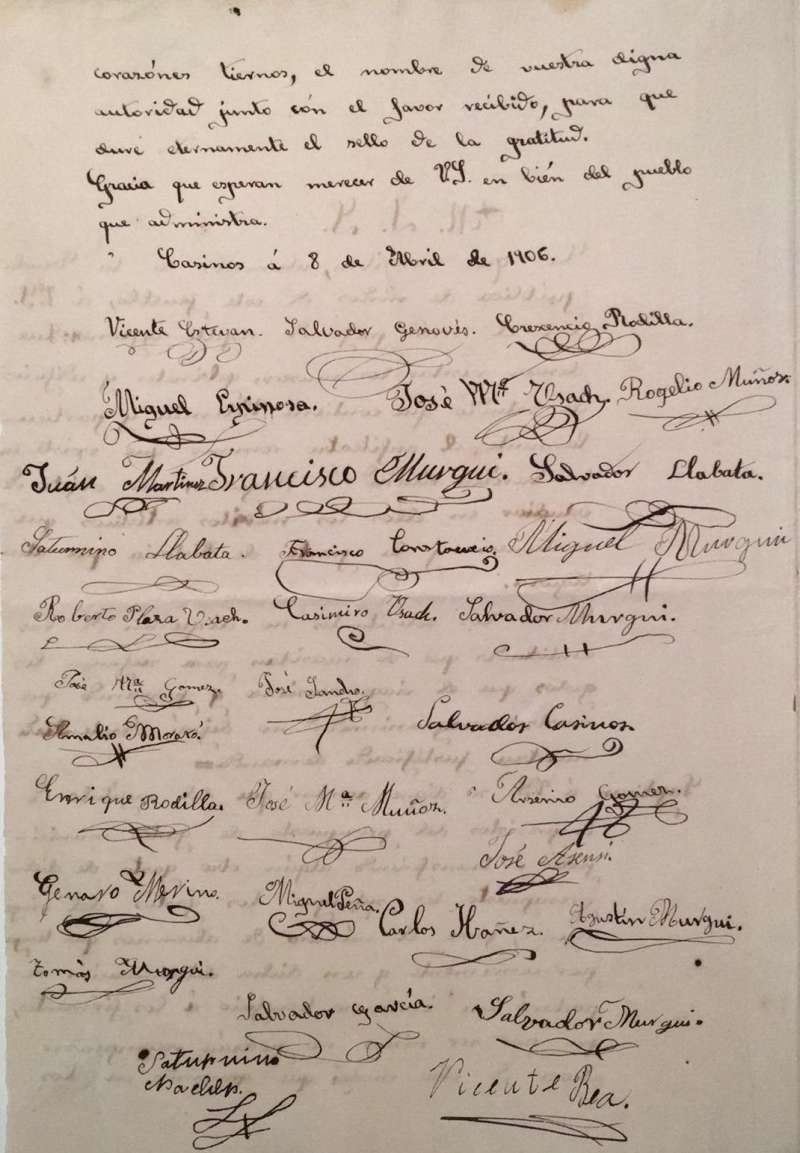 corazónes tiernos, el nombre de vuestra digna
autoridad junto cón el favor recibido, para que
dure eternamente el sello de la gratitud.
Gracia que esperan merecer de V.S. en bién del pueblo
que administra.
Casinos á 8 de Abril de 1906.
Vicente Estevan. Salvador Genovés. Crecencio Rodilla.
Miguel Espinosa. José Mª Usach. Rogelio Muñoz.
Juán Martinez Francisco Murgui. Salvador Llabata.
Saturnino Llabata. Francisco Miguel Murgui
Roberto Plaza Usach. Casimiro Usach. Salvador Murgui.
José Mª Gomez. José
Amalio Salvador Casinos.
Enrique Rodilla. José Mª Muñoz. Arsenio Gomez.
José Asensi.
Genaro Merino. Miguel Peña. Carlos Ibañez. Agustín Murgui.
Tomás Murgui.
Salvador García. Salvador Murgui.
Saturnino
Vicente Bea.